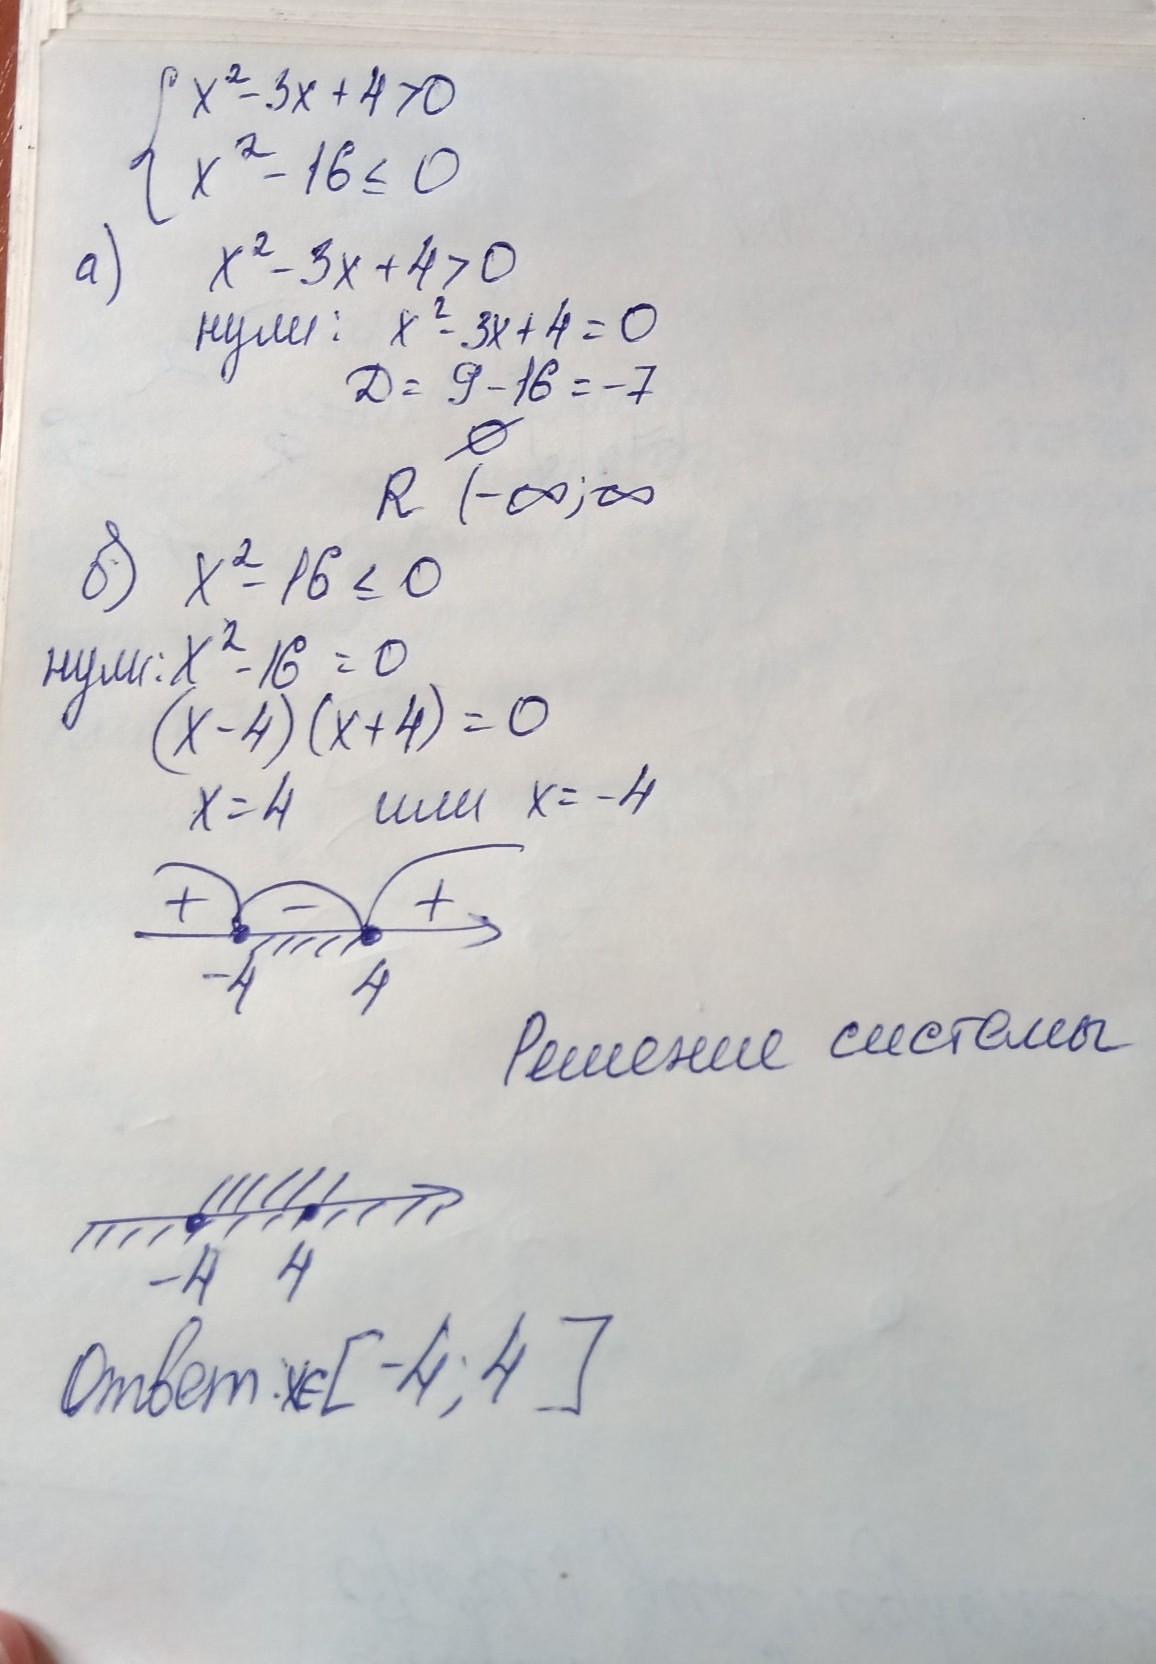 { x² - 3x + 4 > 0
x² - 16 ≤ 0
а) x² - 3x + 4 > 0
нули: x² - 3x + 4 = 0
D = 9 - 16 = -7
∅
R (-∞; ∞
б) x² - 16 ≤ 0
нули: x² - 16 = 0
(x-4)(x+4) = 0
x = 4 или x = -4
+ - +
-4 4
Решение системы
-4 4
Ответ: x∈[-4; 4]